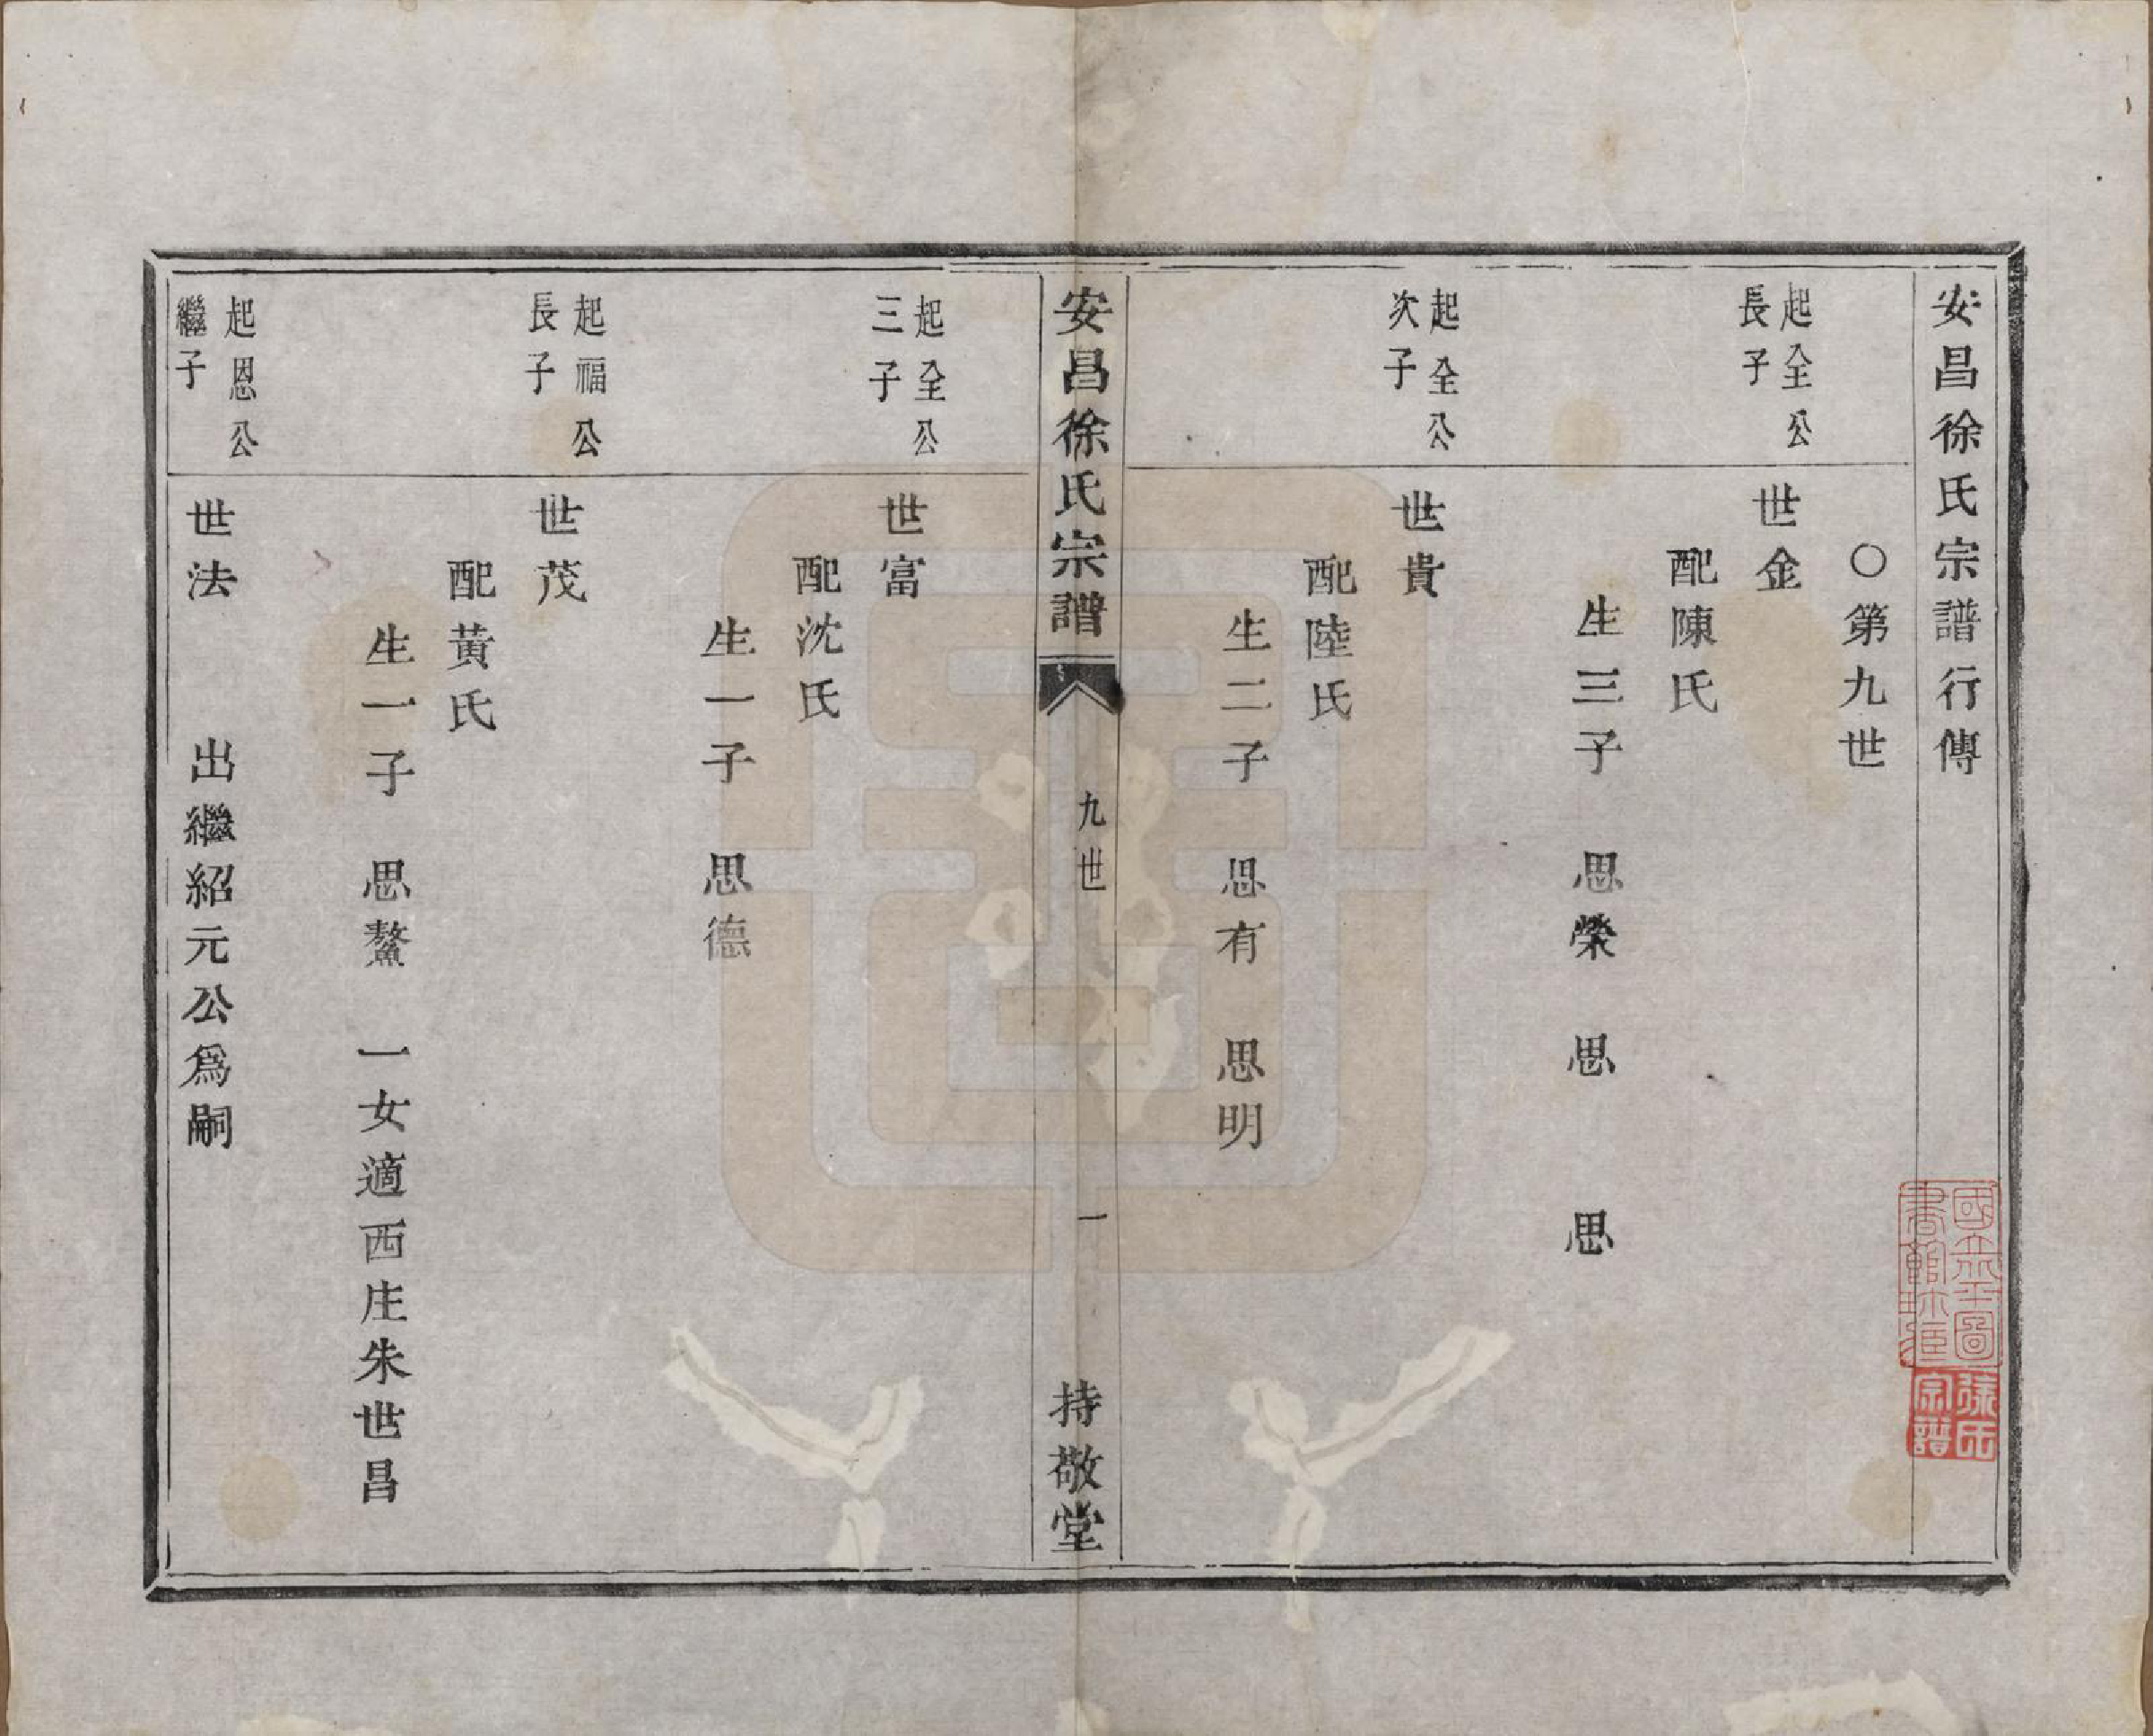 安昌徐氏宗譜行傳
○第九世
起全公
長子
世金
配陳氏
生三子　思榮　思　　思
起全公
次子
世貴
配陸氏
生二子　思有　思明
安昌徐氏宗譜　九世　一　持敬堂
起全公
三子
世富
配沈氏
生一子　思德
起福公
長子
世茂
配黃氏
生一子　思鰲　一女適西庄朱世昌
起恩公
繼子
世法　出繼紹元公爲嗣
國立北平圖
書館珍藏
孫氏
宗譜